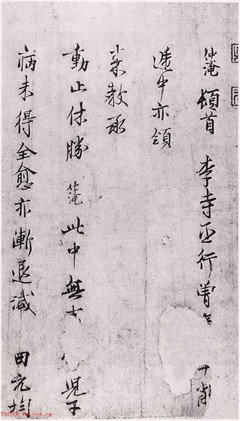 仲淹頓首 李寺丞行曾 手削
遞中亦領
來教承
動止休勝 仲淹此中無 兒子
病未得全愈亦漸退減 田元均